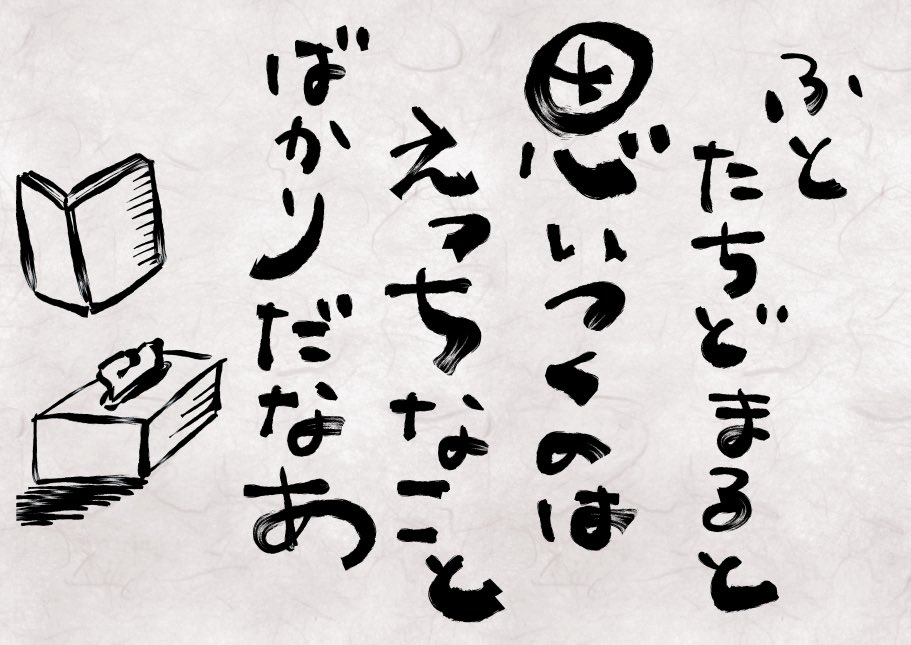 ふと
たちどまると
思いつくのは
えっちなこと
ばかりだなあ